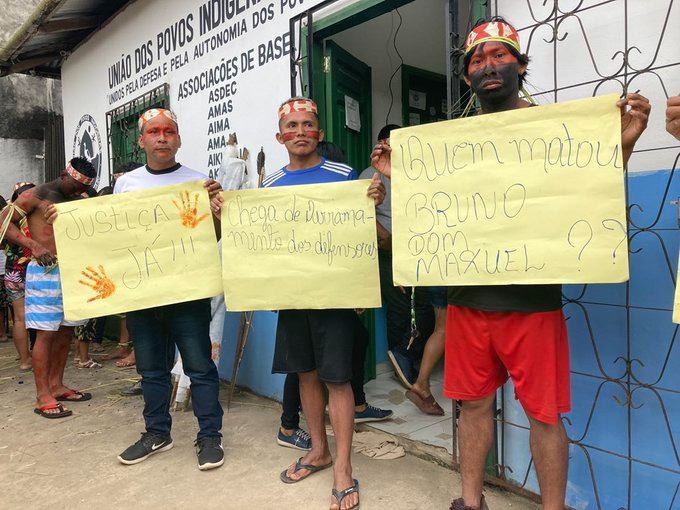 UNIÃO DOS POVOS INDÍGEN
UNIDOS PELA DEFESA E PELA AUTONOMIA DOS POV
ASSOCIAÇÕES DE BASE
ASDEC
AMAS
AIMA
JUSTIÇA
JÁ!!!
Chega de Durrama-
mento dos difensores
Quem matou
BRUNO
DOM
MAXUEL ??